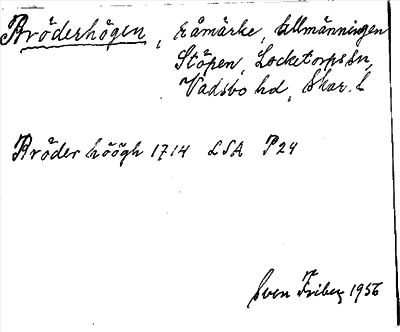 Bröderhögen, råmärke, Allmänningen
Stöpen, Locketorps sn,
Vadsbo hd, Skar. l
Bröder höögh 1714 LSA P24
Sven Friberg 1956